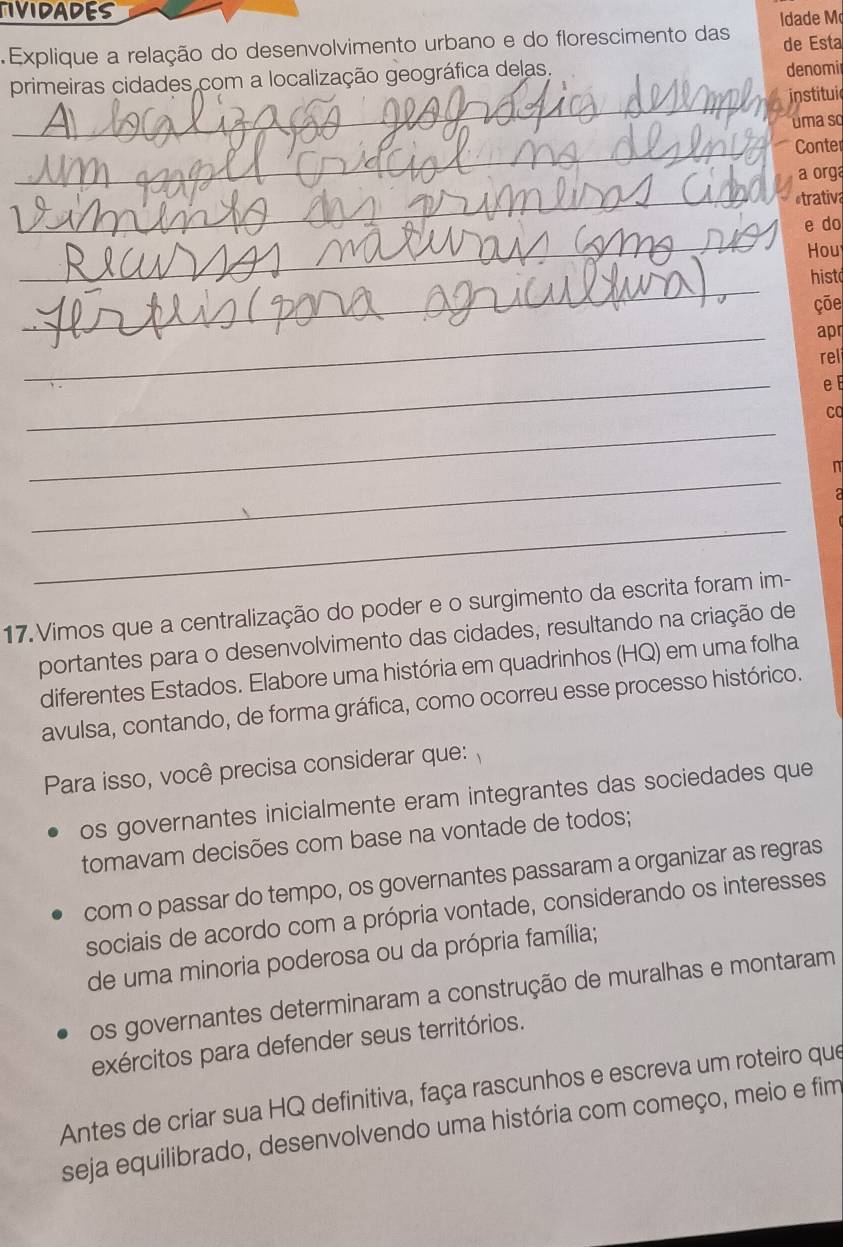 TIVIDADES
.Explique a relação do desenvolvimento urbano e do florescimento das
primeiras cidades com a localização geográfica delas.
A localização geográfica desempenha
um papel crucial no desenvol-
vimento das primeiras cidades
Recursos naturais como rios
férteis (para agricultura).
17. Vimos que a centralização do poder e o surgimento da escrita foram im-
portantes para o desenvolvimento das cidades, resultando na criação de
diferentes Estados. Elabore uma história em quadrinhos (HQ) em uma folha
avulsa, contando, de forma gráfica, como ocorreu esse processo histórico.
Para isso, você precisa considerar que:
• os governantes inicialmente eram integrantes das sociedades que
tomavam decisões com base na vontade de todos;
• com o passar do tempo, os governantes passaram a organizar as regras
sociais de acordo com a própria vontade, considerando os interesses
de uma minoria poderosa ou da própria família;
• os governantes determinaram a construção de muralhas e montaram
exércitos para defender seus territórios.
Antes de criar sua HQ definitiva, faça rascunhos e escreva um roteiro que
seja equilibrado, desenvolvendo uma história com começo, meio e fim
Idade Mé
de Esta
denomi
instituiç
uma so
Conte
a orga
trativa
e do
Hou
histó
çõe
apr
rel
e E
co
n
a